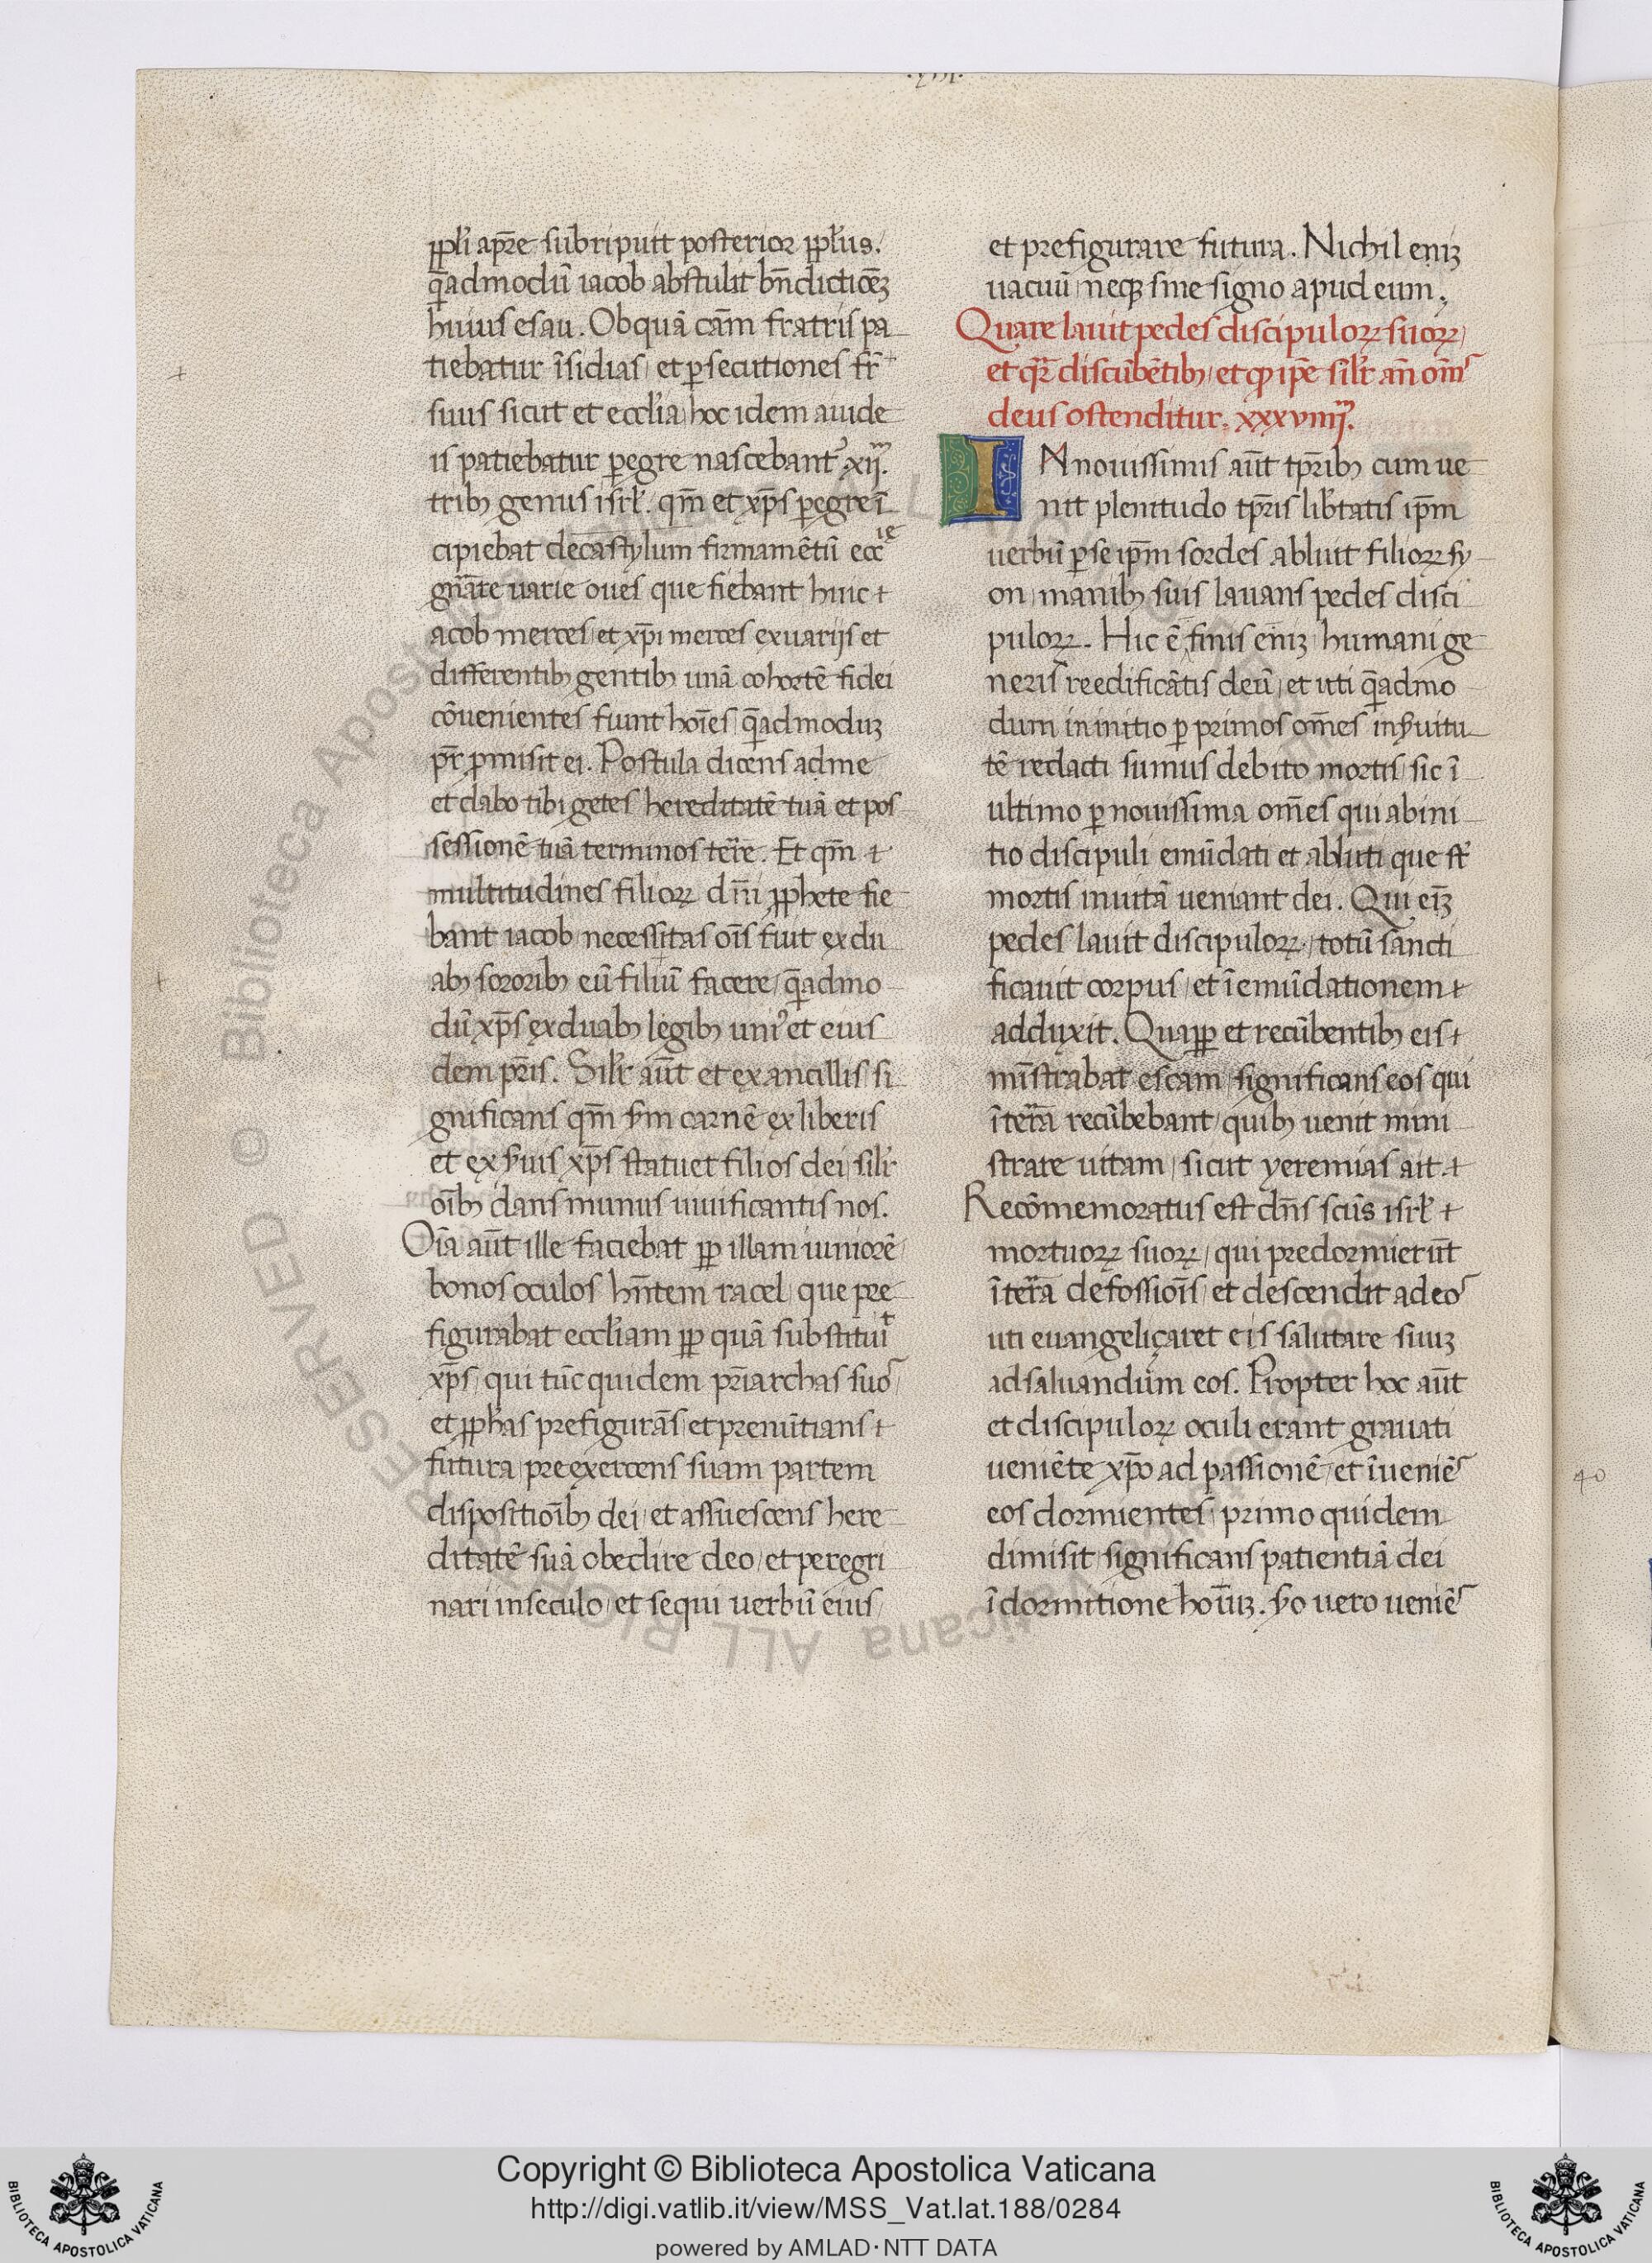 ppl̄i a pr̄e subripuit posterior ppl̄us.
q̄admodū iacob abstulit bn̄dictiōeꝫ
huius esau. Ob quā cām fratris pa
tiebatur īsidias, et ꝑsecutiones fr̄
suus sicut et eccl̄ia hoc idem a iude
is patiebatur ꝑegre nascebant᷑ .xij.
tribꝫ genus isrl̄. qm̄ et xp̄s ꝑegre ī
cipiebat decastylum firmamētū ecc̄ie
gn̄are uarie oues que fiebant huic
acob merces, et xp̄i merces ex uarijs et
differentibꝫ gentibꝫ unā cohortē fidei
cōuenientes fiunt hoīes, q̄admoduꝫ
pr̄ ꝓmisit ei. Postula dicens ad me
et dabo tibi gētes hereditatē tuā et pos
sessionē tuā terminos terre. Et qm̄
multitudines filioꝝ dn̄i ꝓphete fie
bant iacob, necessitas oīs fuit ex du
abꝫ sororibꝫ eū filiū facere, q̄admo
dū xp̄s ex duabꝫ legibꝫ uni᷒ et eius
dem pr̄is. Silr̄ aūt et ex ancillis si
gnificans qm̄ sm̄ carnē ex liberis
et ex s̄uis xp̄s statuet filios dei, silr̄
oībꝫ dans munus uiuificantis nos.
Oīa aūt ille faciebat ꝓp illam iuniorē
bonos oculos hn̄tem racel, que pre
figurabat eccl̄iam ꝓp quā substituit
xp̄s, qui tūc quidem pr̄iarchas suos
et ꝓphās prefigurās et prenūtians
futura, preexercens suam partem
dispositioībꝫ dei, et assuescens here
ditatē suā obedire deo, et peregri
nari in seculo, et sequi uerbū eius,
et prefigurare futura. Nichil eniꝫ
uacuū neqꝫ sine signo apud eum.
Quare lauit pedes discipuloꝝ suoꝝ,
et qr̄e discūbētibꝫ, et qꝫ ipē silr̄ an̄ om̄s
deus ostenditur. xxxviiij.
IN nouissimis aūt tp̄ribꝫ cum ue
nit plenitudo tp̄ris lib̄tatis ip̄m
uerbū ꝑ se ip̄m sordes abluit filioꝝ sy
on, manibꝫ suis lauans pedes disci
puloꝝ. Hic ē finis eniꝫ humani ge
neris reedificātis deū, et uti q̄admo
dum in initio ꝑ primos om̄es in s̄uitu
tē redacti sumus debito mortis, sic ī
ultimo ꝑ nouissima om̄es qui ab ini
tio discipuli emūdati et abluti que st̄
mortis in uitā ueniant dei. Qui eiꝫ
pedes lauit discipuloꝝ, totū sancti
ficauit corpus, et ī emūdationem
adduxit. Quaꝓp et recūbentibꝫ eis
mīstrabat escam, significans eos qui
ī terra recūbebant, quibꝫ uenit mini
strare uitam, sicut yeremias ait.
Recōmemoratus est dn̄s scūs isrl̄
mortuoꝝ suoꝝ, qui predormierūt
ī terra defossioīs, et descendit ad eos
uti euangeliçaret eis salutare suuꝫ
ad saluandum eos. Propter hoc aūt
et discipuloꝝ oculi erant grauati
ueniēte xp̄o ad passionē, et īueniēs
eos dormientes, primo quidem
dimisit, significans patientiā dei
ī dormitione hoīuꝫ. s̄o uero ueniēs
40
Copyright © Biblioteca Apostolica Vaticana
http://digi.vatlib.it/view/MSS_Vat.lat.188/0284
powered by AMLAD·NTT DATA
BIBLIOTECA APOSTOLICA VATICANA
BIBLIOTECA APOSTOLICA VATICANA